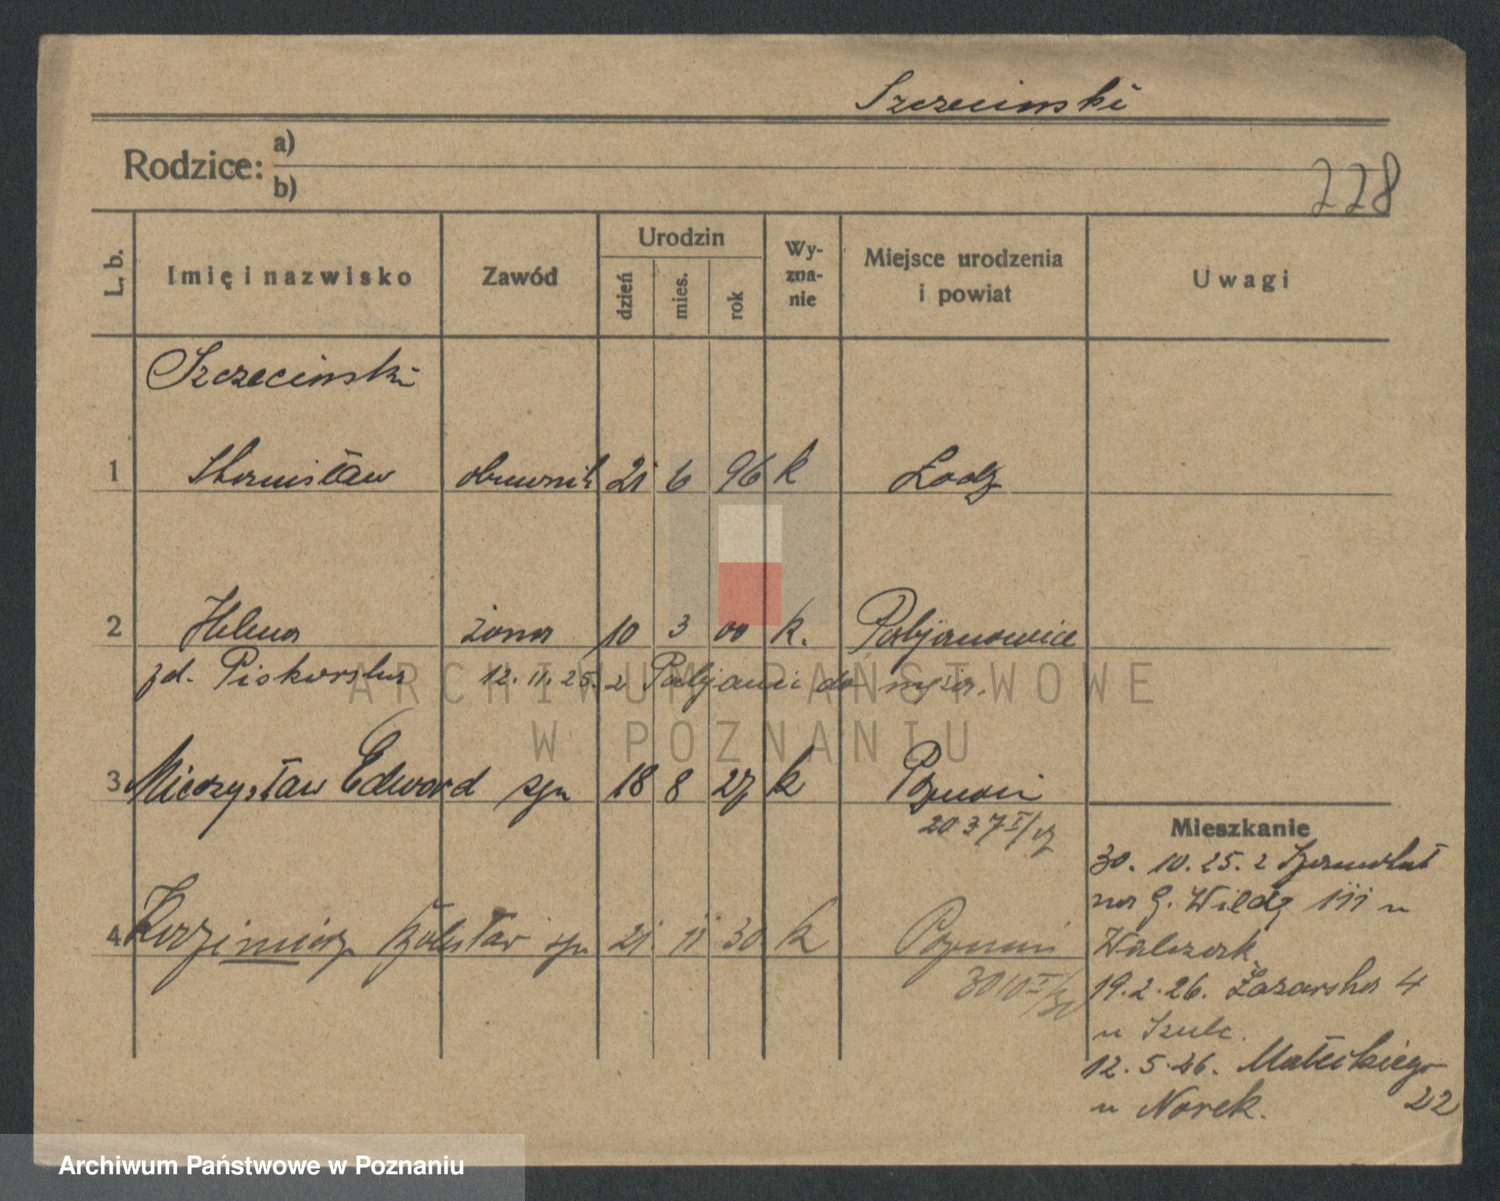 Szczecinski
Rodzice: a)
b)
228
L. b. Imię i nazwisko Zawód Urodzin dzień mies. rok Wyznanie Miejsce urodzenia i powiat Uwagi
Szczecinski
1 Stanisław obuwnik 21 6 96 k Łodz
2 Helena żona 10 3 00 k. Pabjanowice
zd. Piskorska 12. 11. 25. z Pabjanic do męża.
3 Mieczysław Edward syn 18 8 27 k Poznań
2037 I/27
Mieszkanie
30. 10. 25. z
na G. Wildę III u
4 Kazimierz Bolesław syn 21 11 30 k Poznań
Walczak
3010 I/30
19. 2. 26. Łazarska 4
u Szulc.
12. 5. 26. Małeckiego
22
u Norek.
ARCHIWUM PAŃSTWOWE
W POZNANIU
Archiwum Państwowe w Poznaniu